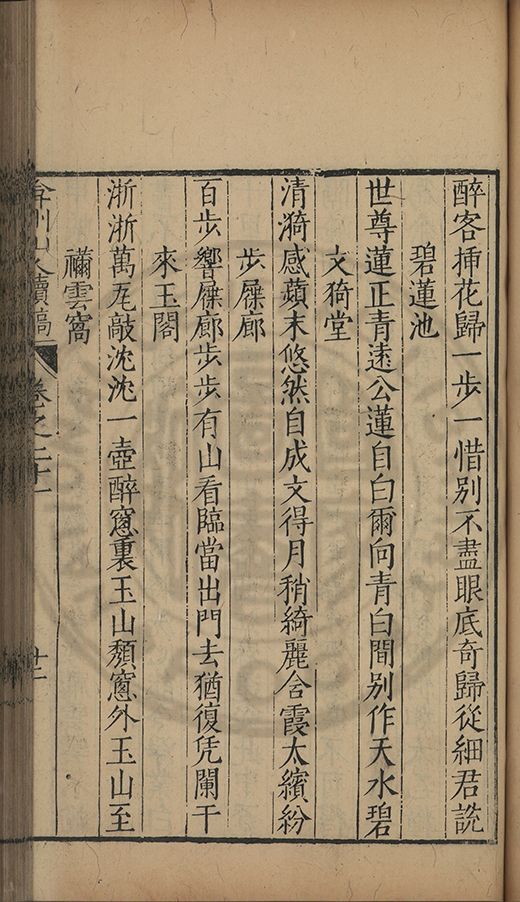 醉客挿花歸一步一惜别不盡眼底奇歸從細君説
碧蓮池
世尊蓮正青遠公蓮自白爾向青白間别作天水碧
文猗堂
清漪感蘋末悠然自成文得月稍綺麗含霞太繽紛
步屧廊
百步響屧廊步步有山看臨當出門去猶復凭闌干
來玉閣
淅淅萬瓦敲沈沈一壺醉窻裏玉山頹窻外玉山至
禰雲窩
弇州山人續稿
卷之二十一